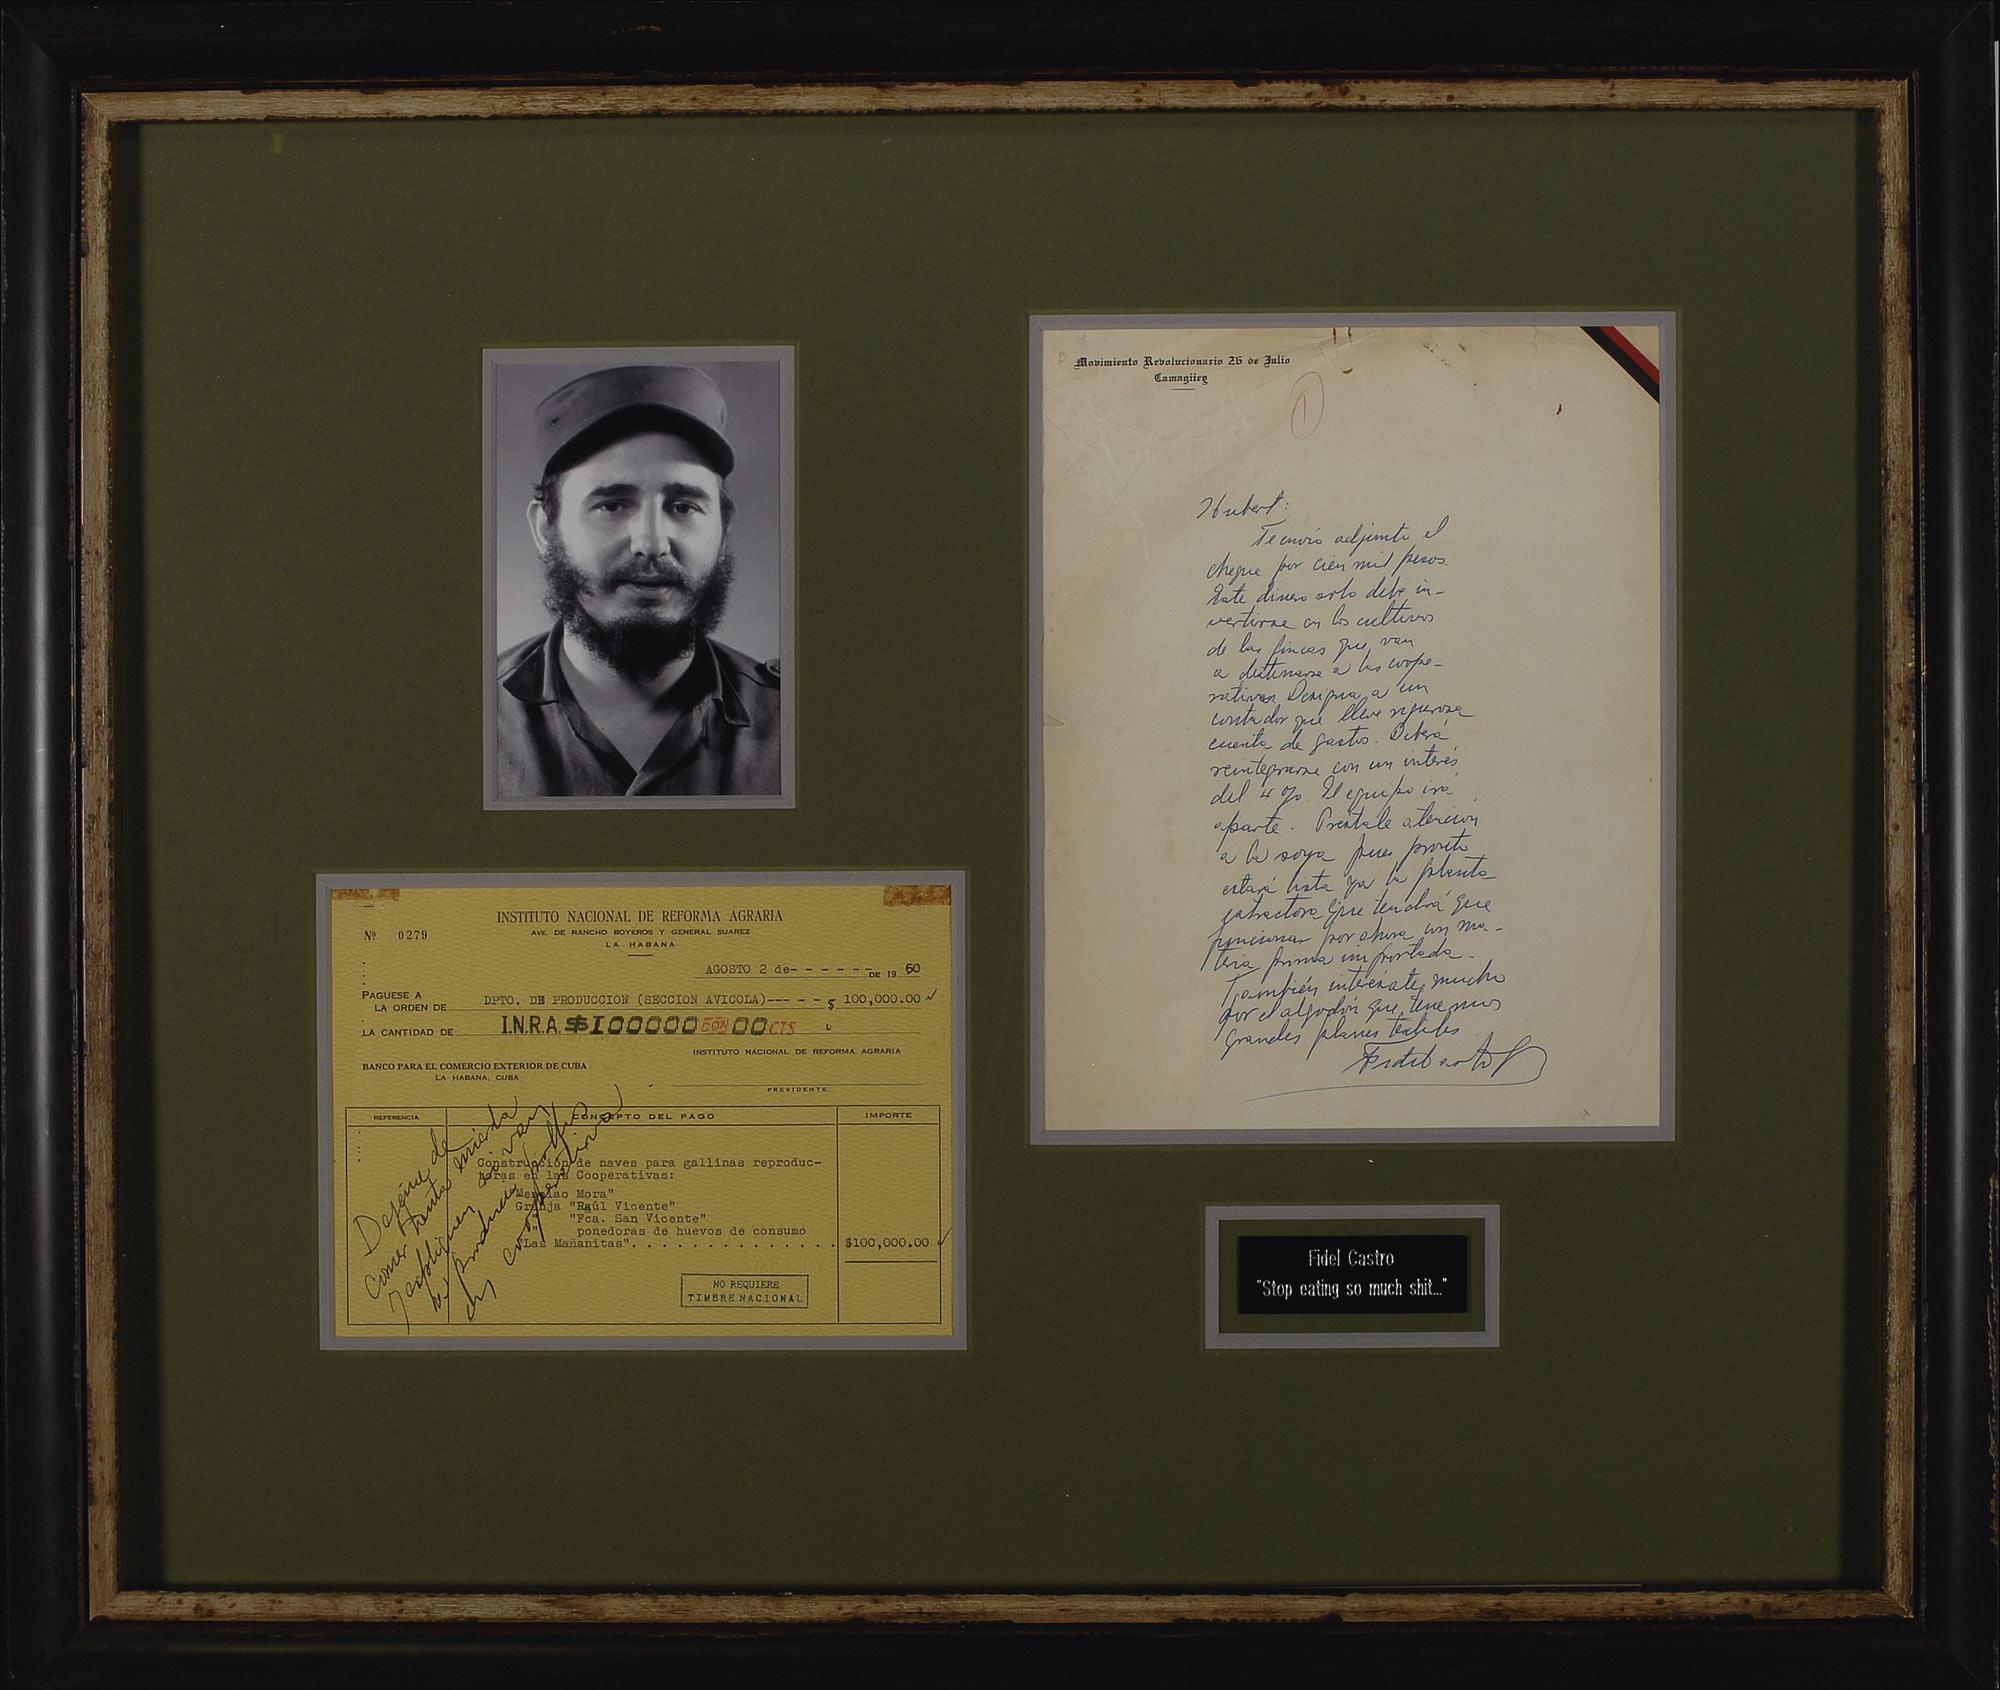 Movimiento Revolucionario 26 de Julio
Camagüey
1
Hubert:
Te envío adjunto el
cheque por cien mil pesos.
Este dinero solo debe in-
vertirse en los cultivos
de las fincas que van
a destinarse a las coope-
rativas. Designa a un
contador que lleve rigurosa
cuenta de gastos. Deberá
reintegrarse con un interés
del 4 %. El equipo irá
aparte. Prestale atención
a la soya pues pronto
estará lista ya la planta
extractora que tendrá que
funcionar por ahora con ma-
teria prima importada.
También interésate mucho
por el algodón que tenemos
grandes planes textiles
Fidel Castro
INSTITUTO NACIONAL DE REFORMA AGRARIA
AVE. DE RANCHO BOYEROS Y GENERAL SUAREZ
LA HABANA
Nº 0279
AGOSTO 2 de- - - - - - - DE 19 60
PAGUESE A
LA ORDEN DE DPTO. DE PRODUCCION (SECCION AVICOLA)--- - - $ 100,000.00
LA CANTIDAD DE I.N.R.A. $100000 CON 00 CTS
INSTITUTO NACIONAL DE REFORMA AGRARIA
BANCO PARA EL COMERCIO EXTERIOR DE CUBA
LA HABANA, CUBA
PRESIDENTE
REFERENCIA CONCEPTO DEL PAGO IMPORTE
Construcción de naves para gallinas reproduc-
toras en las Cooperativas:
"Menelao Mora"
Granja "Raúl Vicente"
" "Fca. San Vicente"
" ponedoras de huevos de consumo
"Las Mañanitas". . . . . . . . . . . . . . . $100,000.00
NO REQUIERE
TIMBRE NACIONAL
Dejense de
comer tanta mierda
y expliquen si van
a producir pollos
en cooperativa
Fidel Castro
"Stop eating so much shit..."